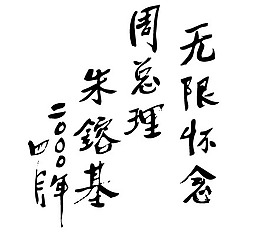 无限怀念
周总理
朱鎔基
二〇〇〇年
四月